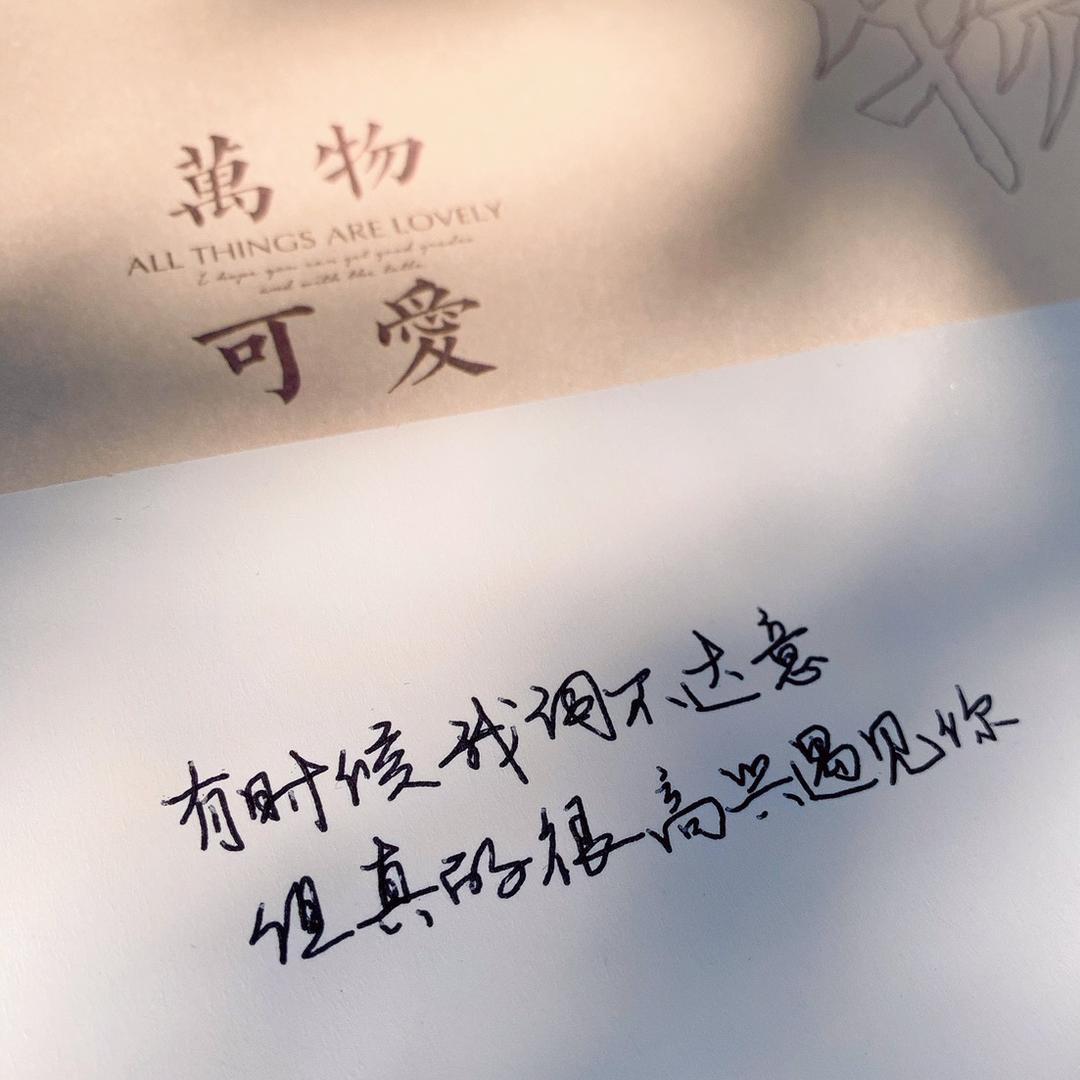 萬物
ALL THINGS ARE LOVELY
I hope you can get good grades
and with the
可愛
有时候我词不达意
但真的很高兴遇见你